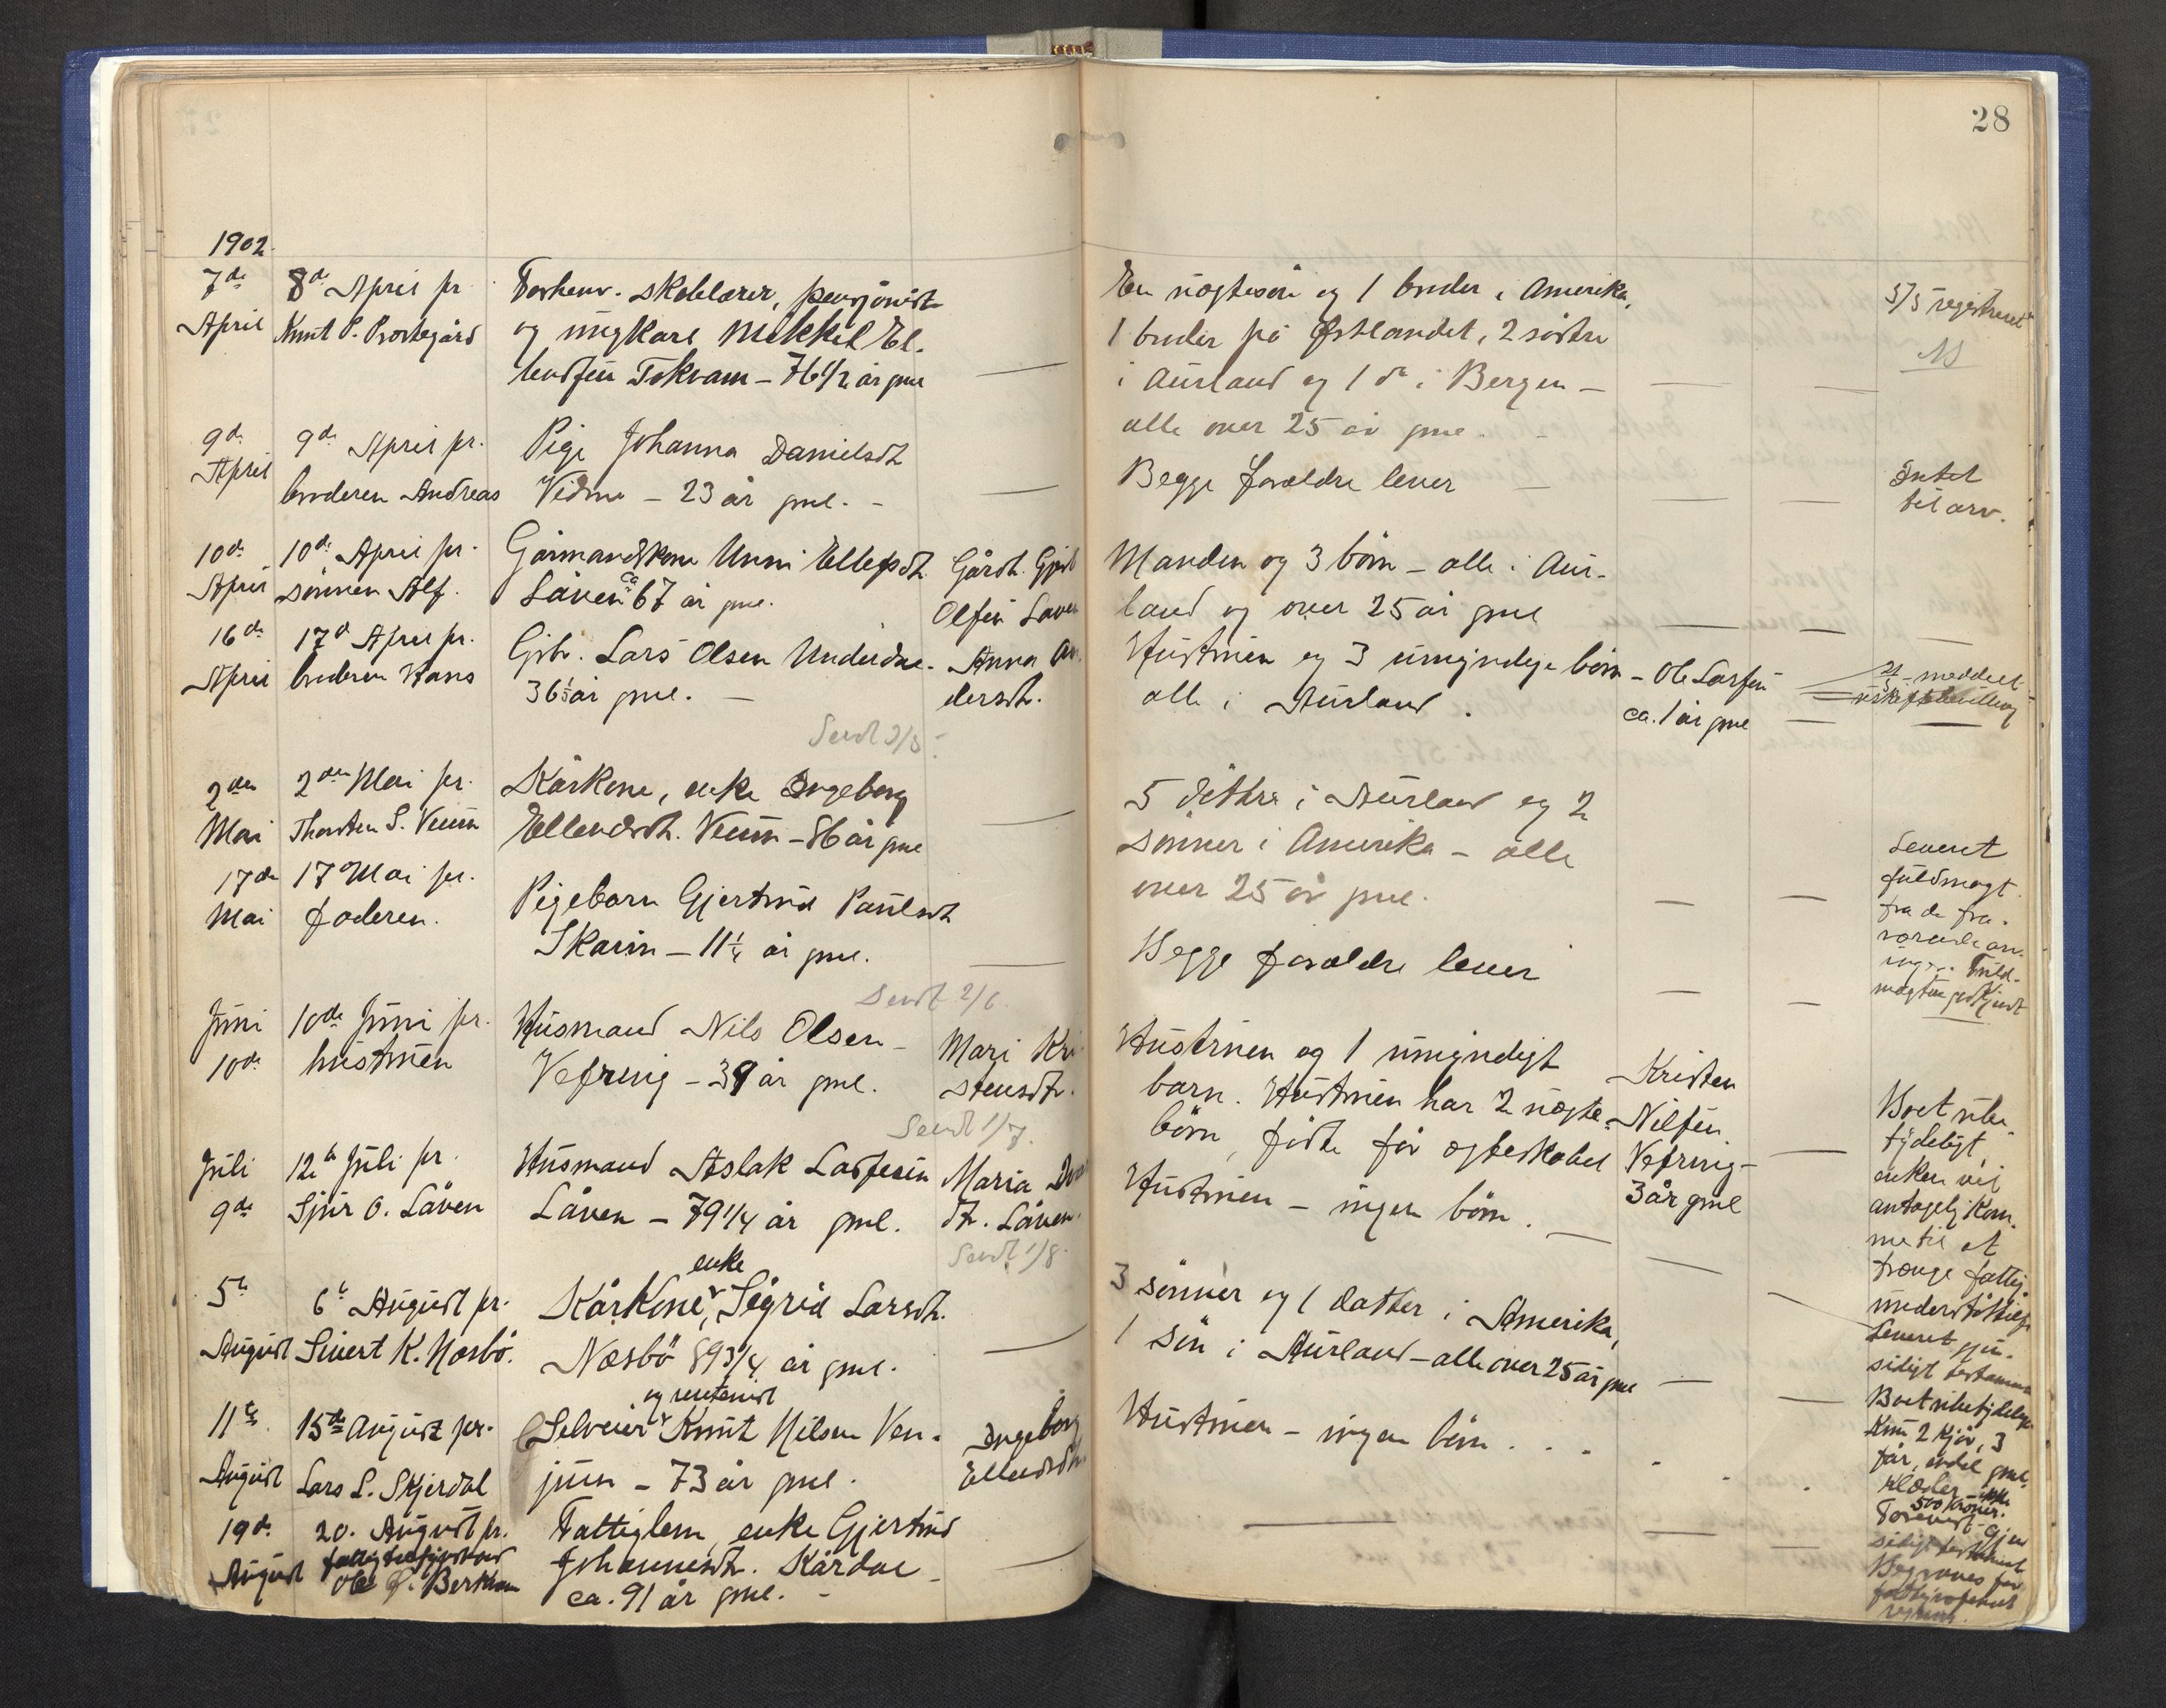 28
1902.
7de April
8de April pr
Knut P. Prestegård
Forhenv. skolelærer, pensjonist
og ungkarl Mikkel El-
lendsen Tokvam - 76 1/2 år gml
En nogtesön og 1 broder i Amerika,
1 broder på Østlandet, 2 söstre
i Aurland og 1 do i Bergen -
alle over 25 år gml.
5/5 registreret
9de April
9de April pr.
broderen Andreas
Pige Johanna Danielsdt.
Vidme - 23 år gml. -
Begge forældre lever
Intet
til arv.
10de April
10de April pr.
sönnen Alf.
Gårmandskone Unni Ellefsdt.
Låven ca 67 år gml.
Gårdb.
Olsen Låven
Manden og 3 börn - alle i Aur-
land og over 25 år gml
16de April
17de April pr.
broderen Hans
Grbr. Lars Olsen Underdal-
36 1/2 år gml. -
Anna An-
dersdt.
Hustruen og 3 umyndige börn
alle i Aurland.
- Ole Larsen
ca. 1 år gml
meddelt
Sendt 2/5
2den Mai
2den Mai pr.
Thorsten S. Veum
Kårkone, enke Ingeborg
Ellendsdt. Veum - 86 år gml
5 döttre i Aurland og 2
sönner i Amerika - alle
over 25 år gml.
Leveret
fuldmagt
fra de fra-
værende arv-
inger. Fuld-
17de Mai
17 Mai pr.
faderen.
Pigebarn Gjertrud Paulsdt
Skaim - 11 1/4 år gml.
Begge forældre lever
Sendt 2/6.
Juni 10de
10de Juni pr.
hustruen
Husmand Nils Olsen
Vefring - 39 år gml.
Mari Kri-
stensdt.
Hustruen og 1 umyndigt
barn. Hustruen har 2 uægte
börn, födte för ægteskabet
Kristen
Nilsen
Vefring -
3 år gml
Boet ube-
tydeligt,
enken vil
antagelig kom-
me til at
trænge fattig
understöttelse
Sendt 1/7.
Juli 9de
12te Juli pr.
Sjur O. Låven
Husmand Aslak Lassesen
Låven - 79 1/4 år gml.
Maria
dt. Låven.
Hustruen - ingen börn.
Leveret gjen-
sidigt testament
Sendt 1/8.
5te August
6te August pr.
Sivert K. Næsbö.
Kårkone, enke Sigrid Larsdt.
Næsbö 89 3/4 år gml.
3 sönner og 1 datter i Amerika,
1 sön i Aurland - alle over 25 år gml
Boet ubetydeligt
Kun 2 kjör, 3
får, endel gml.
klæder
500 kroner.
11te August
15de August pr.
Lars L. Skjerdal
Selveier og rentenist Knut Nilsen Ven-
jum - 73 år gml.
Ingeborg
Ellendsdt.
Hustruen - ingen börn . . .
Forevist gjen
sidigt testament
19de August
20. August pr.
Ole Ø. Berkvam
Fattiglem, enke Gjertrud
Johannesdt. Kårdal
ca. 91 år gml. -
Begraves for